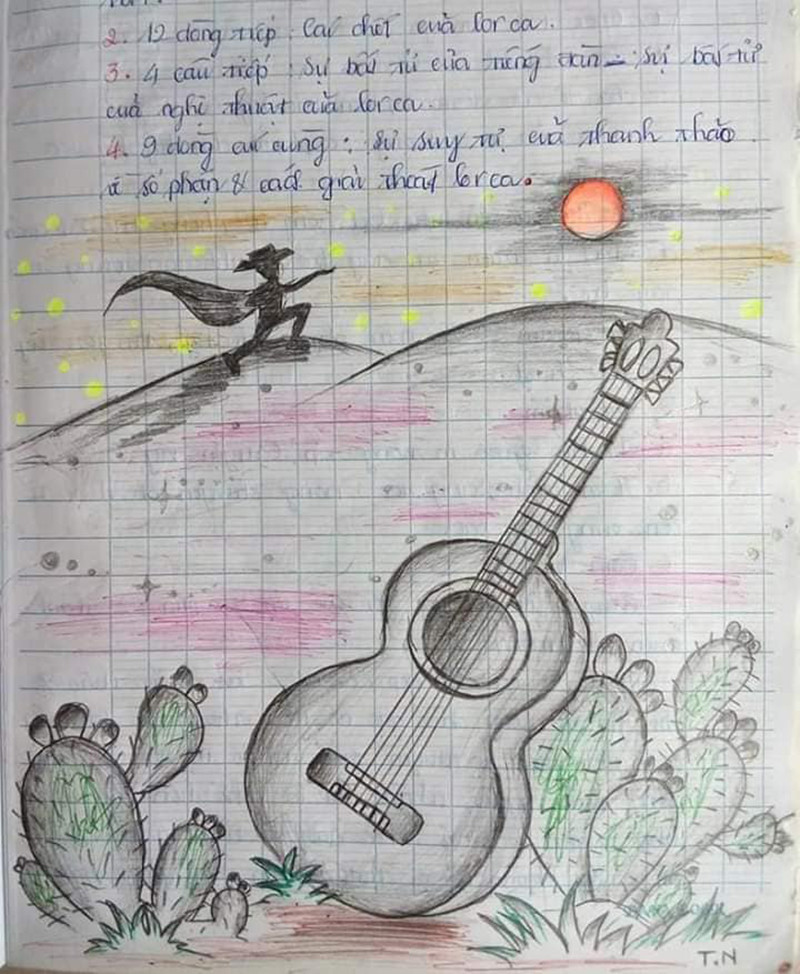 2. 12 dòng tiếp : Cái chết của lorca.
3. 4 câu tiếp : Sự bất tử của tiếng đàn – sự bất tử
của nghệ thuật của lorca.
4. 9 dòng cuối cùng : sự suy tư của thanh thảo
số phận & cách giải thoát lorca.
T.N